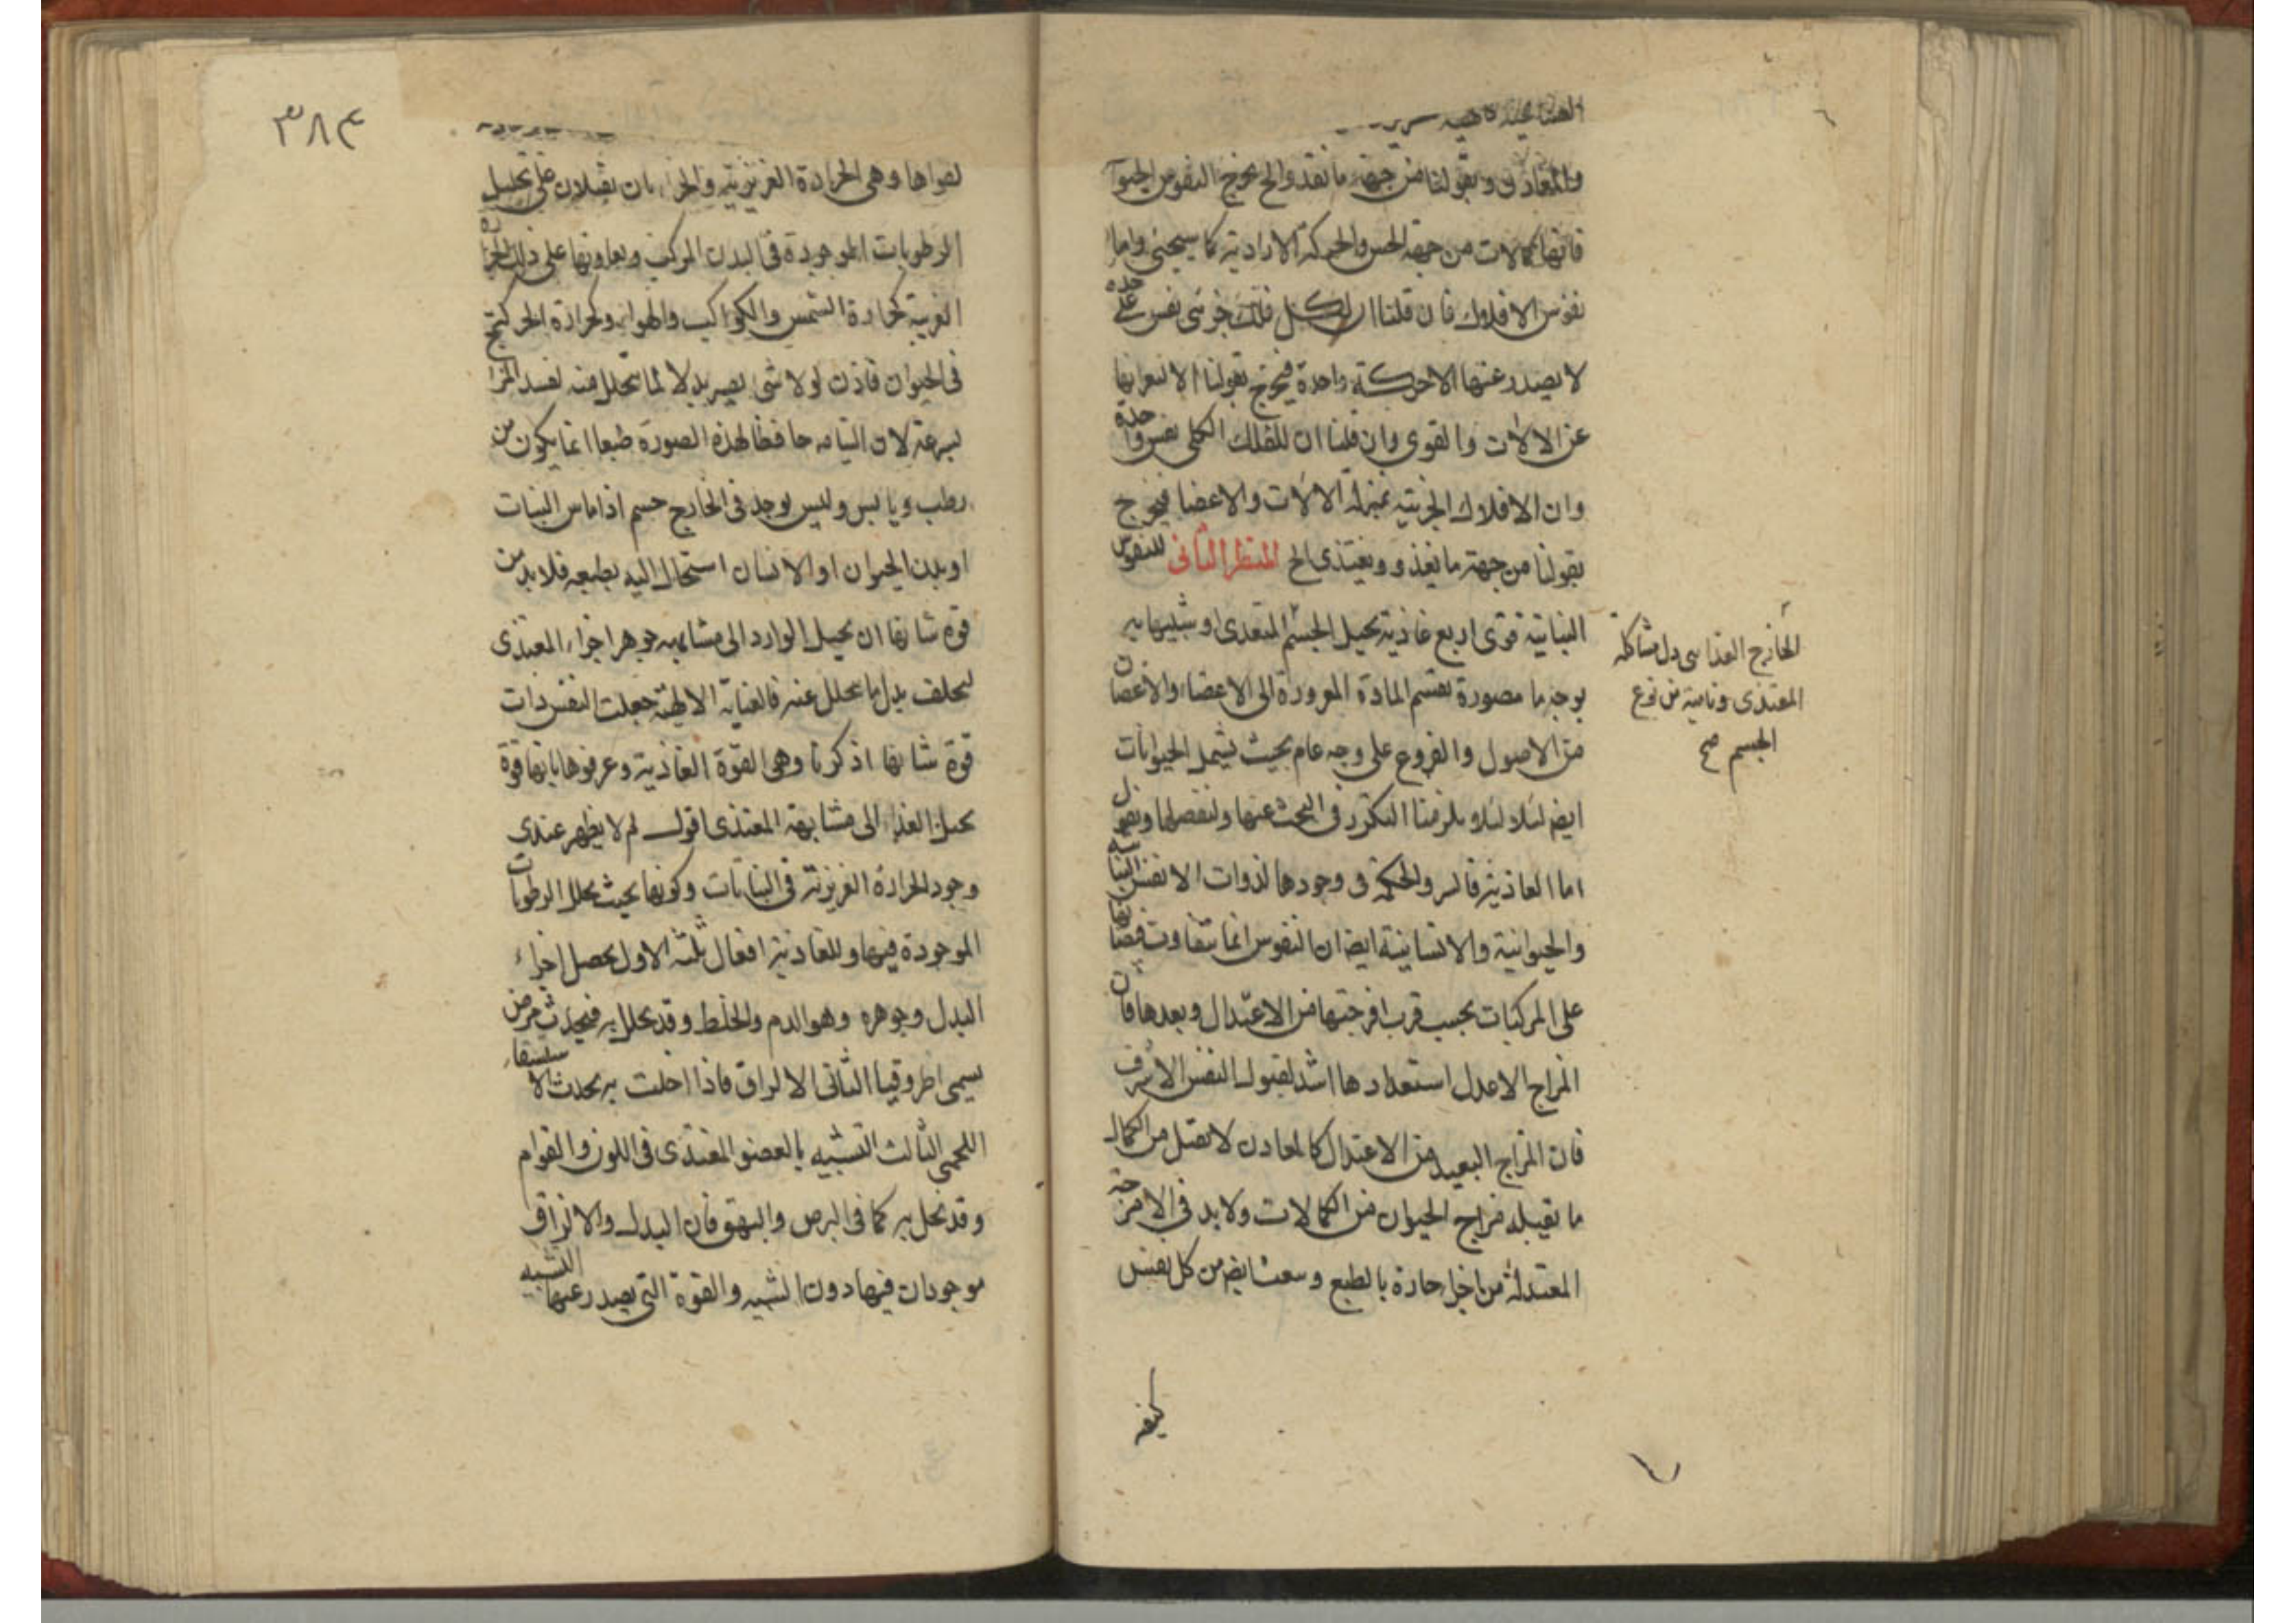 والمعادن وبقولنا من جهة ما تغذو الخ يخرج النفوس الحيوا
فانها كمالات من جهة الحس والحركة الارادية كما سيجئ واما
نفوس الافلاك فان قلنا ان لكل فلك جزئى نفس على حدة
لا يصدر عنها الا حركة واحدة فيخرج بقولنا الا لتعرانها
عن الالات والقوى وان قلنا ان للفلك الكلى نفس واحدة
وان الافلاك الجزئية بمنزلة الالات والاعضا فيخرج
بقولنا من جهة ما يغذو ويغتذى الخ المنظر الثانى للنفوس
النباتية قوى اربع غاذية تحيل الجسم المتغذى او شبيها به
بوجه ما مصورة تقسم المادة المعرورة الى الاعضاء والاغصان
من الاصول والفروع على وجه عام بحيث يشمل الحيوانات
ايضا لئلا يلزمنا التكرر فى البحث عنها ولنفصلها ونقول
اما الغاذية فالسر والحكمة فى وجودها لذوات الانفس النباتية
والحيوانية والانسانية ايضا ان النفوس انما تتفاوت فيضانها
على المركبات بحسب قرب امزجتها من الاعتدال وبعدها فان
المزاج الاعدل استعدادها اشد لقبول النفس الاشرف
فان المزاج البعيد من الاعتدال كالمعادن لا تقبل من الكمال
ما يقبله مزاج الحيوان من الكمالات ولا بد فى الامزجة
المعتدلة من اجزا حارة بالطبع وسعث ايضا من كل نفس
كيفية
الخارج الغذا الى مشاكلة
المغتذى ونامية من نوع
الجسم صح
٣٨٤
لقواها وهى الحرارة الغريزية والجزءان يقبلان على تحليل
الرطوبات الموجودة فى البدن المركب ويعاونها على ذلك الحرارة
الغريبة كحرارة الشمس والكواكب والهواء وكحرارة الحركة
فى الحيوان فاذن لولا شئ يصير بدلا لما يتحلل منه لفسد المزاج
بسرعة لان التيامه حافظا لهذه الصورة طبعا انما يكون من
رطب ويابس وليس يوجد فى الخارج جسم اذا ماس النبات
او بدن الحيوان او الانسان استحال اليه بطبعه فلا بد من
قوة شانها ان تحيل الوارد الى مشابهة جوهر اجزاء المغتذى
ليخلف بدل ما يتحلل عنه فالعناية الالهية جعلت النفس ذات
قوة شانها اذ كرنا وهى القوة الغاذية وعرفوها بانها قوة
تحيل الغذاء الى مشابهة المغتذى اقول لم لا يظهر عندى
وجود الحرارة الغريزية فى النباتات وكونها بحيث تحلل الرطوبات
الموجودة فيها وللغاذية افعال ثلثة الاول تحصل اجزاء
البدل وجوهره وهو الدم والخلط وقد تخلل به فيحدث مرض
يسمى اطروقيا الثانى الالزاق فاذا اخلت به يحدث الاستسقاء
اللحمى الثالث التشبيه بالعضو المغتذى فى اللون والقوام
وقد تخل به كما فى البرص والبهق فان البدل والالزاق
موجودان فيها دون الشبيه والقوة التى يصدر عنها التشبيه